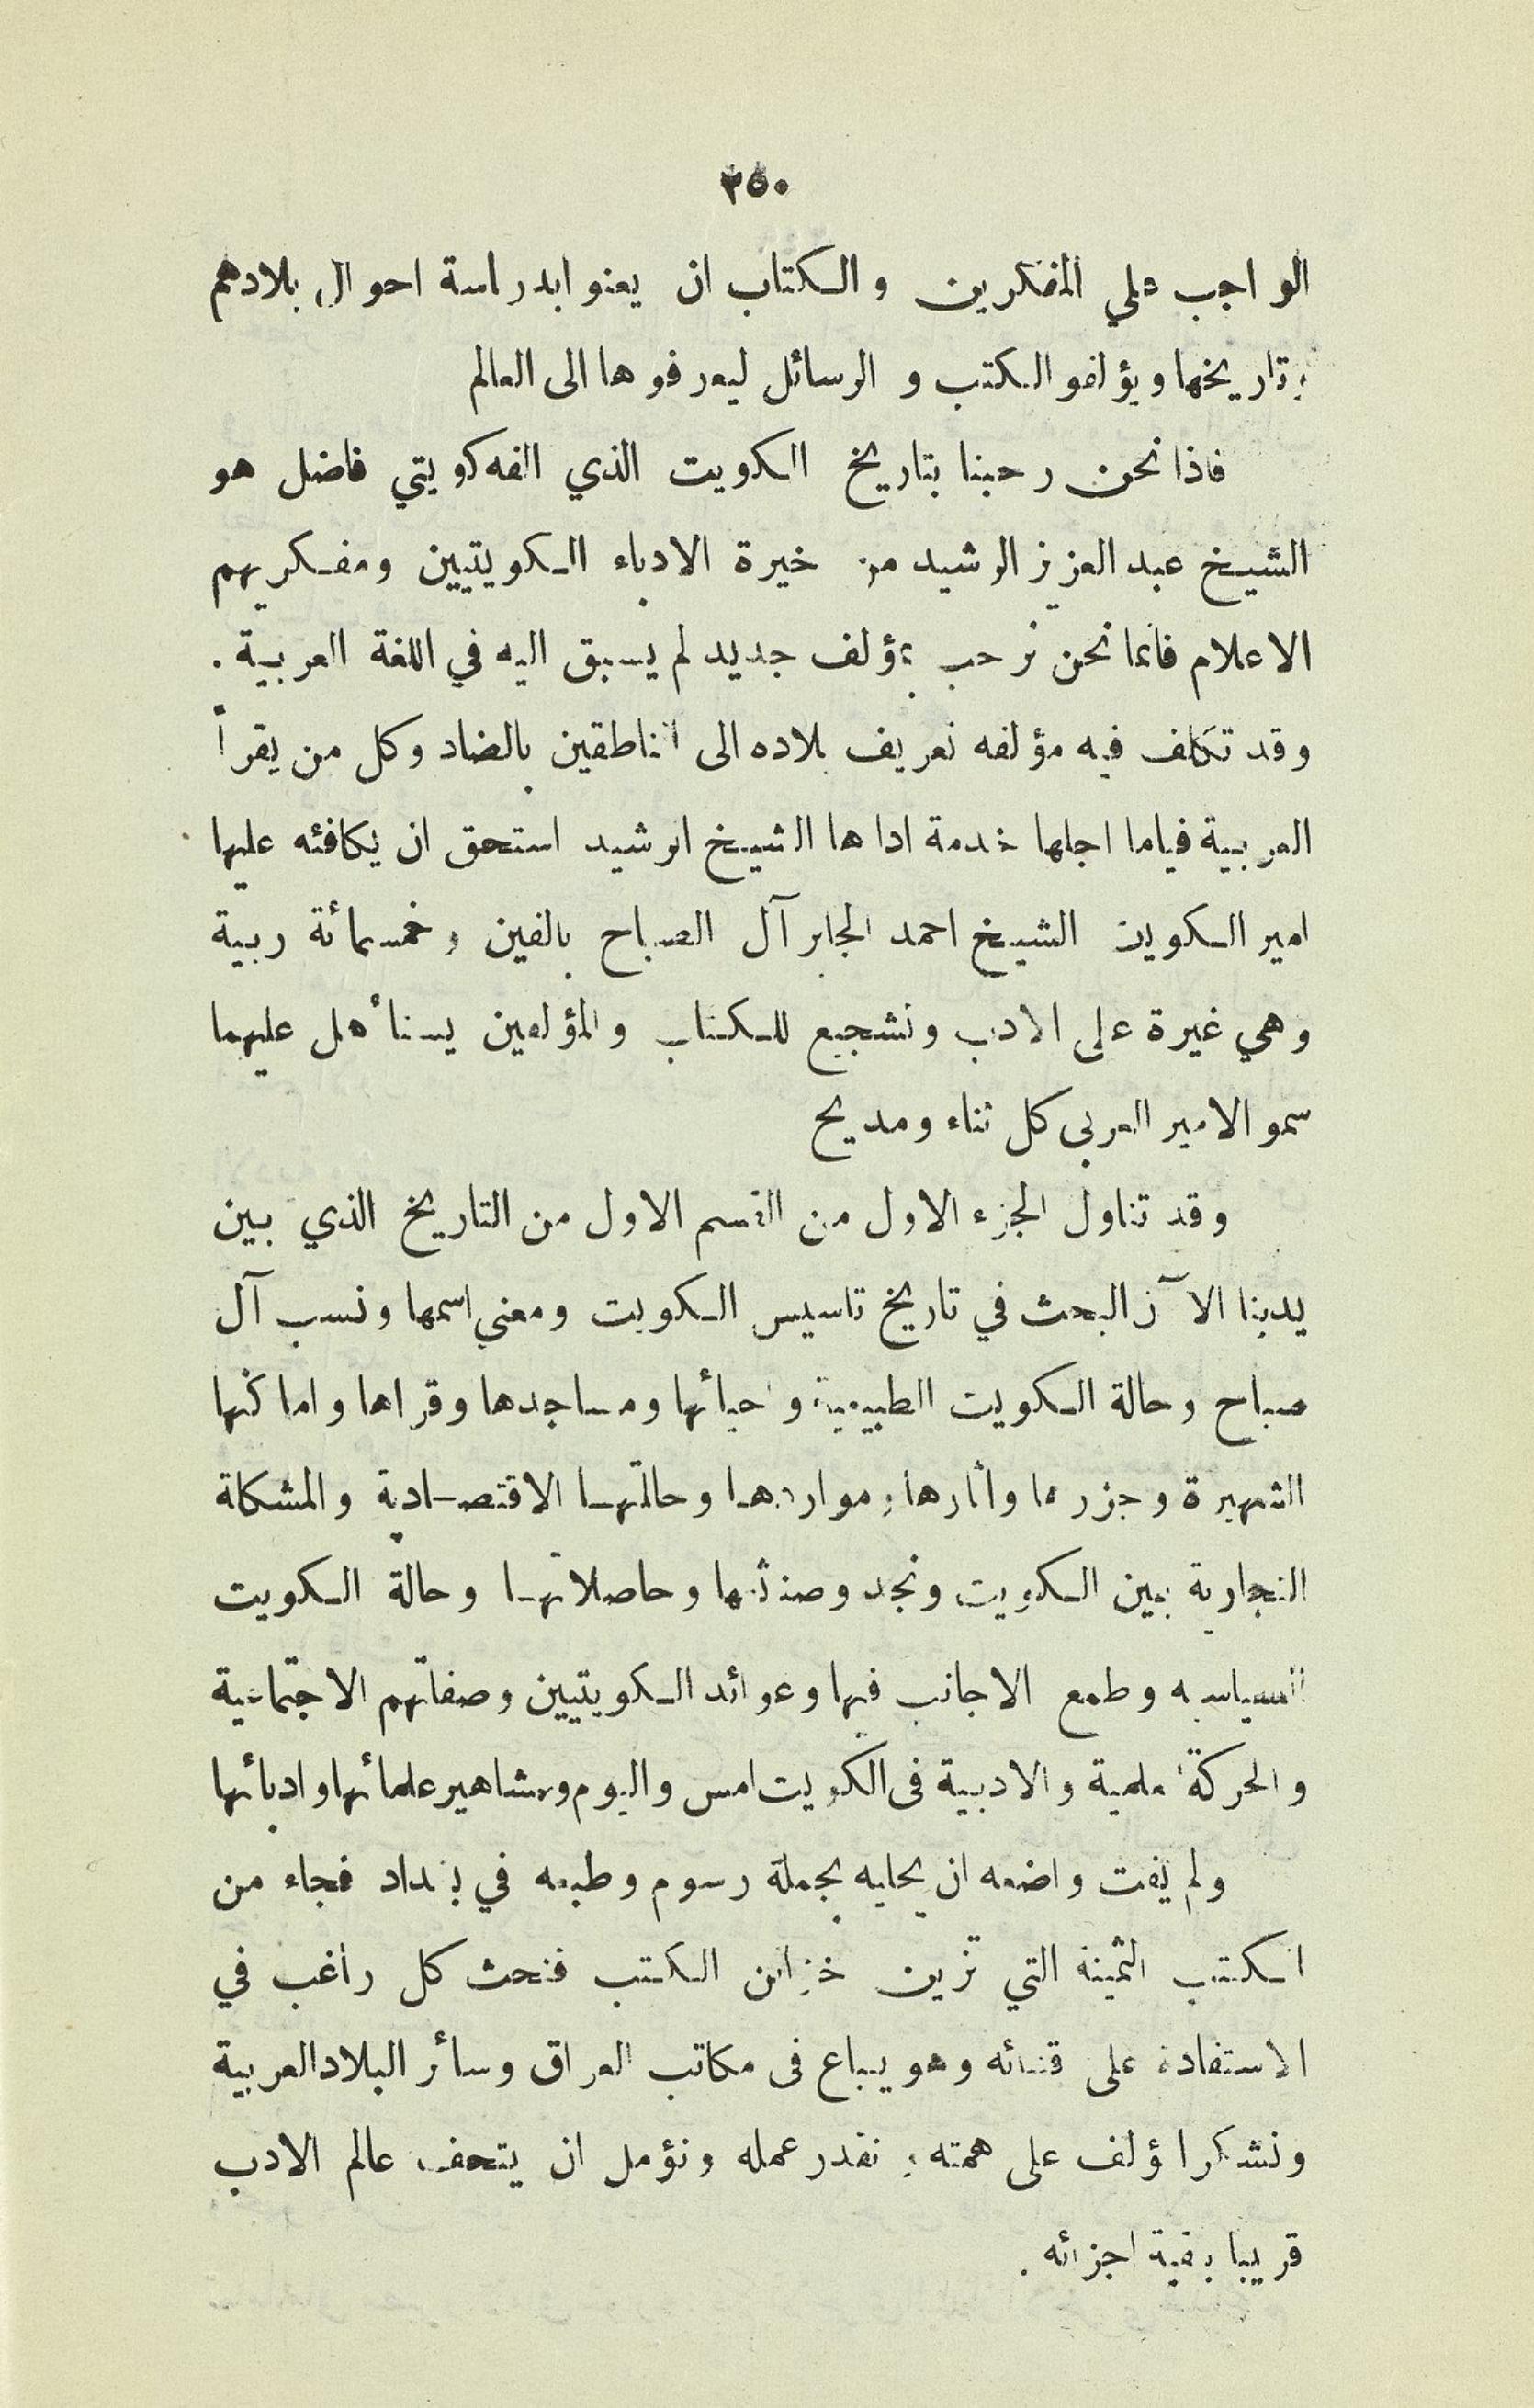 ٢٥٠
الواجب علي المفكرين والكتاب ان يعنوا بدراسة احوال بلادهم
وتاريخها ويؤلفو الكتب و الرسائل ليعرفوها الى العالم
فاذا نحن رحبنا بتاريخ الكويت الذي الفه كويتي فاضل هو
الشيخ عبد العزيز الرشيد من خيرة الادباء الكويتيين ومفكريهم
الاعلام فانما نحن نرحب بمؤلف جديد لم يسبق اليه في اللغة العربية .
وقد تكلف فيه مؤلفه تعريف بلاده الى الناطقين بالضاد وكل من يقرأ
العربية فياما اجلها خدمة اداها الشيخ الرشيد استحق ان يكافئه عليها
امير الكويت الشيخ احمد الجابر آل الصباح بالفين وخمسمائة ربية
وهي غيرة على الادب وتشجيع للكتاب والمؤلفين يستأهل عليهما
سمو الامير العربي كل ثناء ومديح
وقد تناول الجزء الاول من القسم الاول من التاريخ الذي بين
يدينا الآن البحث في تاريخ تاسيس الكويت ومعني اسمها ونسب آل
صباح وحالة الكويت الطبيعية واحيائها ومساجدها وقراها واماكنها
الشهيرة وجزرها واثارها ومواردها وحالتها الاقتصادية والمشكلة
التجارية بين الكويت ونجد وصنائعها وحاصلاتها وحالة الكويت
السياسيه وطمع الاجانب فيها وعوائد الكويتيين وصفاتهم الاجتماعية
والحركة العلمية والادبية فى الكويت امس واليوم ومشاهير علمائها وادبائها
ولم يفت واضعه ان يحليه بجملة رسوم وطبعه في بغداد فجاء من
الكتب الثمينة التي تزين خزائن الكتب فنحث كل راغب في
الاستفادة على قتنائه وهو يباع فى مكاتب العراق وسائر البلاد العربية
ونشكر المؤلف على همته ونقدر عمله ونؤمل ان يتحف عالم الادب
قريبا ببقية اجزائه .